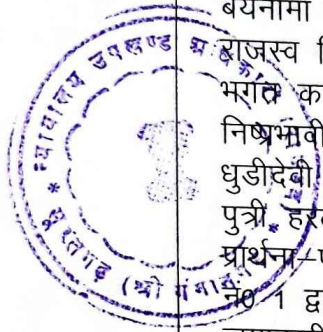 बयनामा
राजस्व
भगत क
निष्प्रभावी
धुडीदेवी
पुत्री
प्रार्थना–प
नं0 1 द्व
न्यायालय उपखण्ड
सूरतगढ़ (श्री गंगानगर)